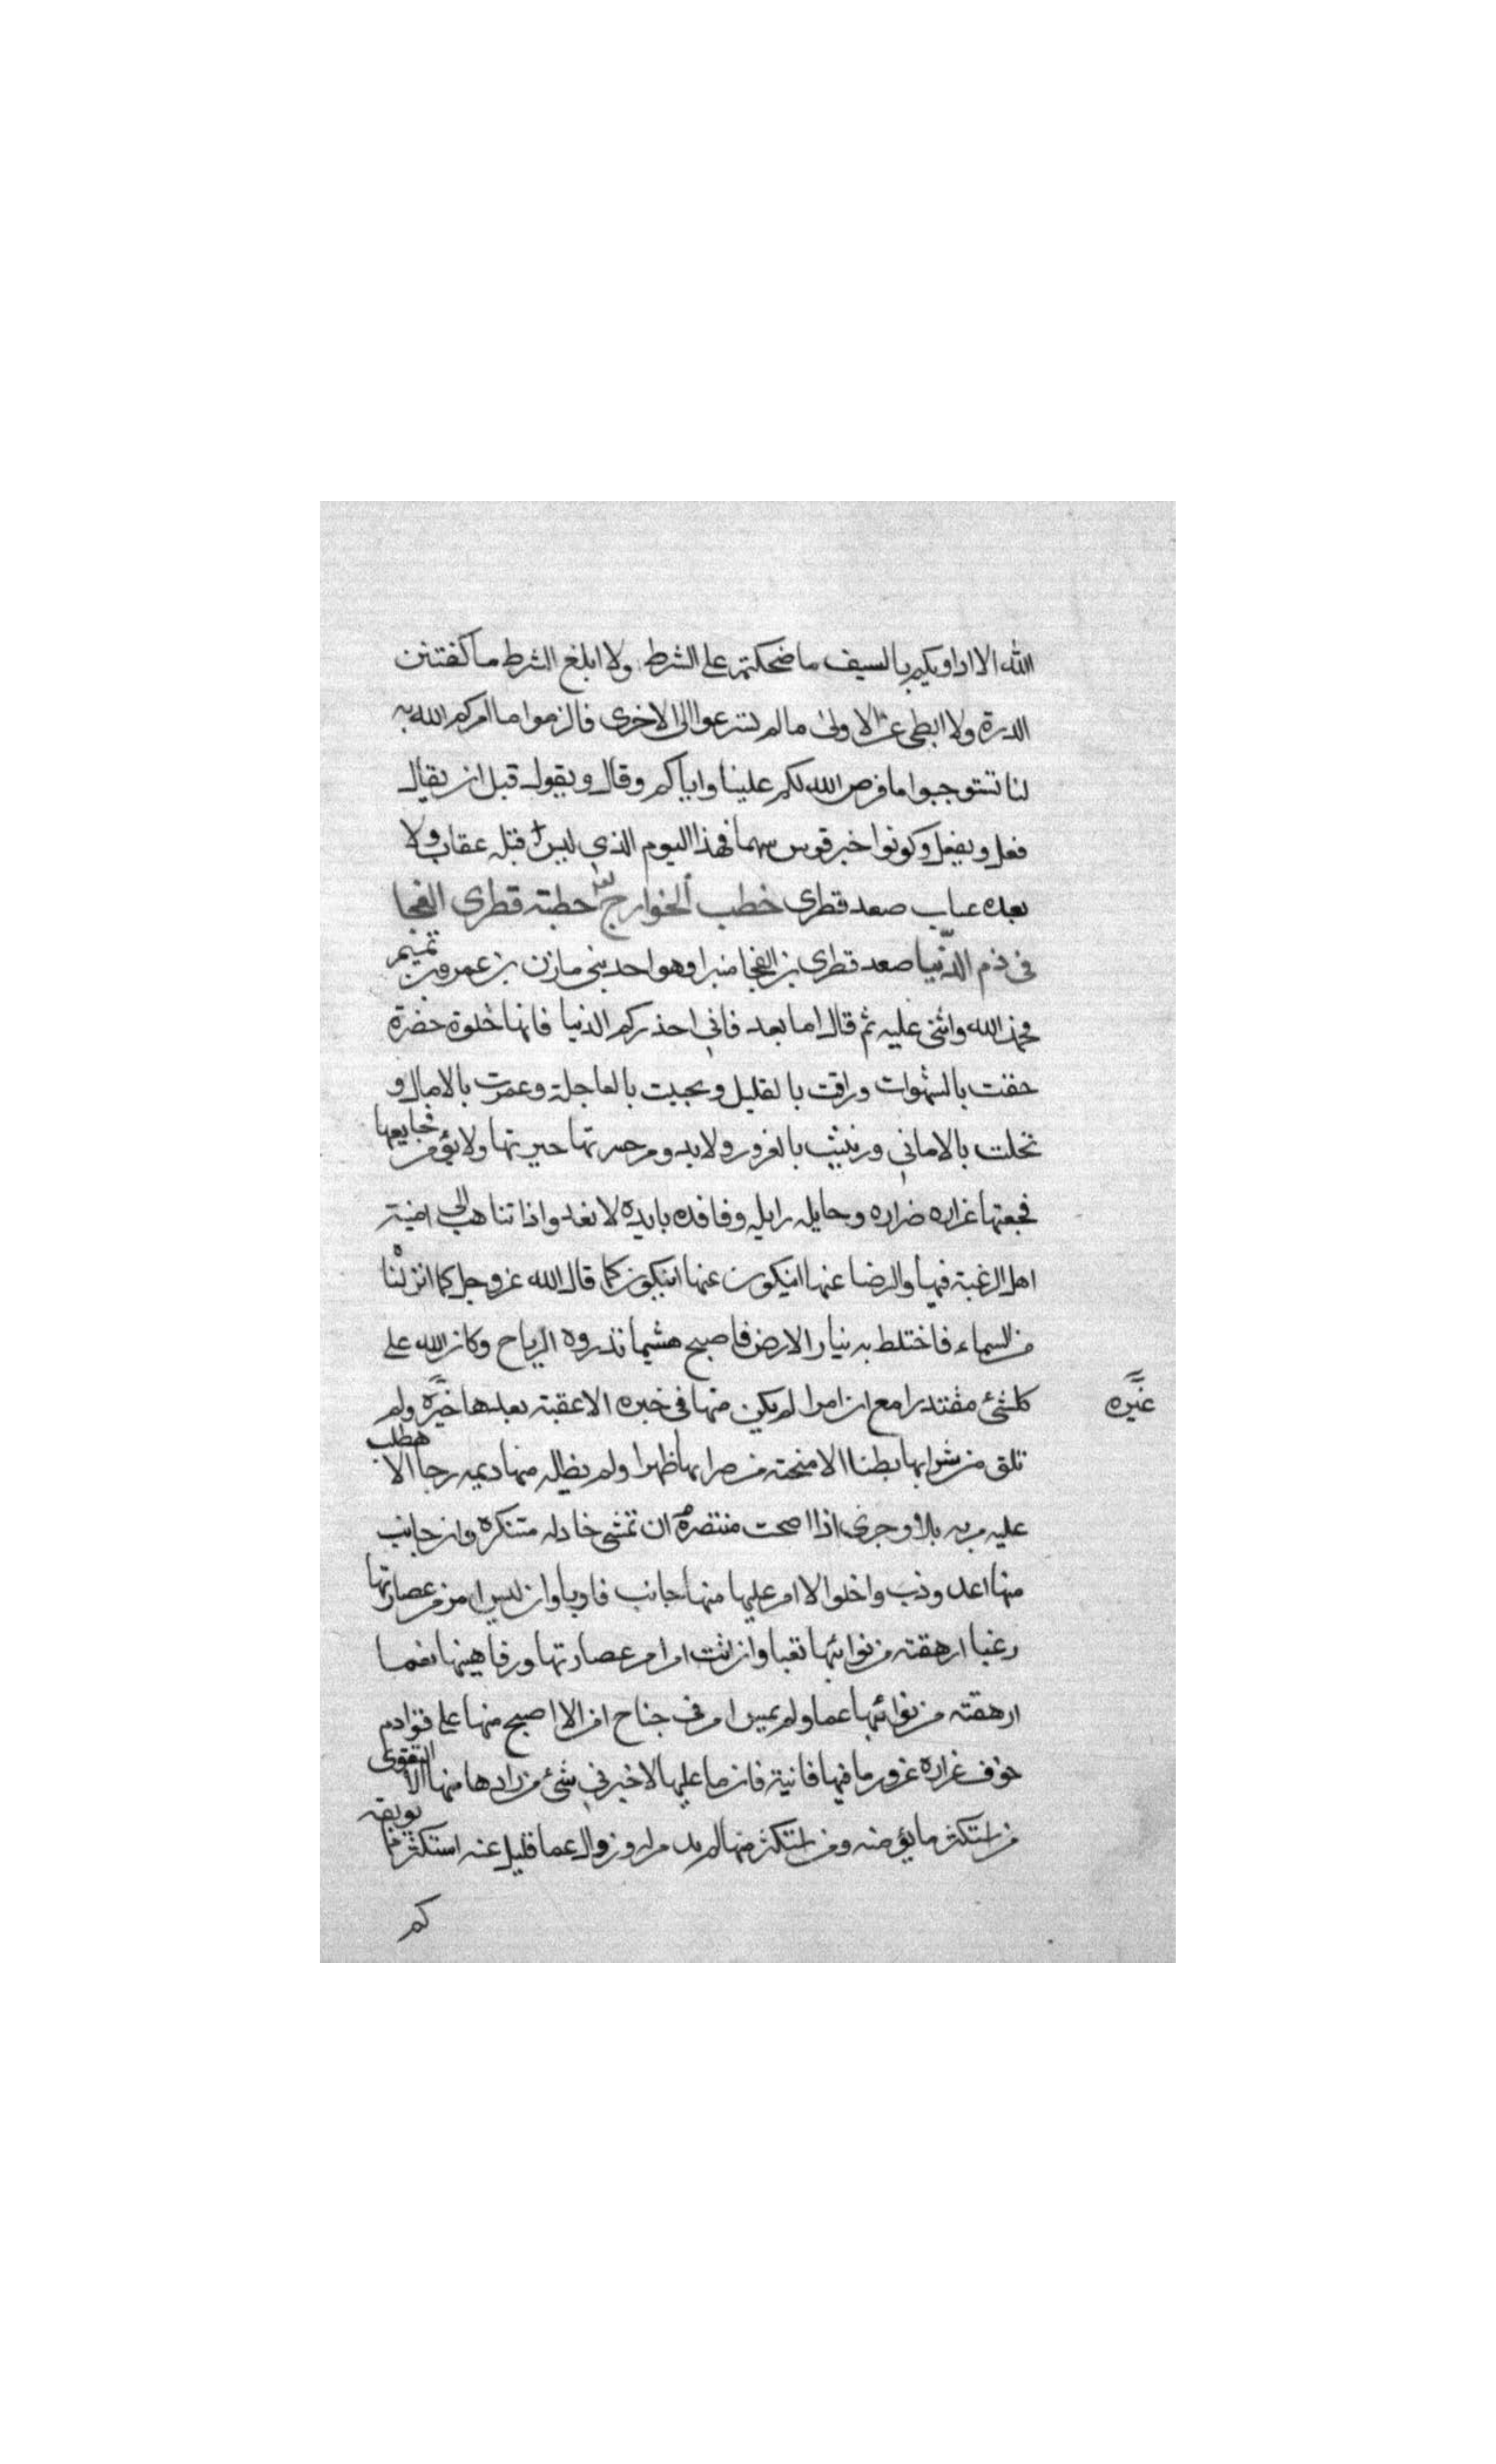 الله الا اداويكم بالسيف ما ضحكتم على الشرط ولا ابلغ الشرط ما كفتنن
الدرة ولا ابطى عن الاولى ما لم تسرعوا الى الاخرى فالزموا ما امركم الله به
لنا تستوجبوا ما فرض الله لكم علينا واياكم وقال ويقول قبل ان يقال
فعل ويفعل وكونوا خير قوس سهما فهذا اليوم الذي ليس قبله عقاب ولا
بعده عتاب صعد قطرى خطب الخوارج خطبة قطرى الفجا
فى ذم الدنيا صعد قطرى بن الفجا منبرا وهو احد بنى مازن بن عمرو بن تميم
فحمد الله واثنى عليه ثم قال اما بعد فانى احذركم الدنيا فانها حلوة خضرة
حفت بالشهوات وراقت بالقليل وتحببت بالعاجلة وعمرت بالامال و
تحلت بالامانى وزينت بالغرور ولا يدوم حسرتها حبرتها ولا يؤمن فجايعها
فجعتها غراره ضراره وحايله زايله وفافده بايدة لا تعد واذا تناهت الى امنية
اهل الرغبة فيها والرضا عنها ان يكون كما قال الله عز وجل كما انزلناه
من السماء فاختلط به نبات الارض فاصبح هشيما تذروه الرياح وكان الله على
كل شئ مقتدرا مع ان امرا لم يكن منها فى خبره الا عقبته بعدها خبرة ولم
غبره
تلق من شرابها بطنا الا منحته من ضرابها ظهرا ولم يظله منها ديمه رجا الا هطلت
عليه مزنه بلاء وحرى اذا اصحت منتصرة ان تمشى خادله متنكرة وان جانب
منها اعذوذب واخلوا الا امر عليها منها جانب فاوبا وان لبس امر من عصارتها
رغبا ارهقته من نوائبها تعبا وان اتت امرا من عصارتها ورفاهيتها نعما
ارهقته من نوائبها غما ولم يمس امر فى جناح امن الا اصبح منها على قوادم
خوف غرارة غرور ما فيها فانية فان ما عليها لا خير فى شئ من زادها منها الا التقوى
من استكثر ما يؤمنه ومن استكثر منها لم يدم له وزوال عما قليل عنه استكثر مما يوبقه
كم